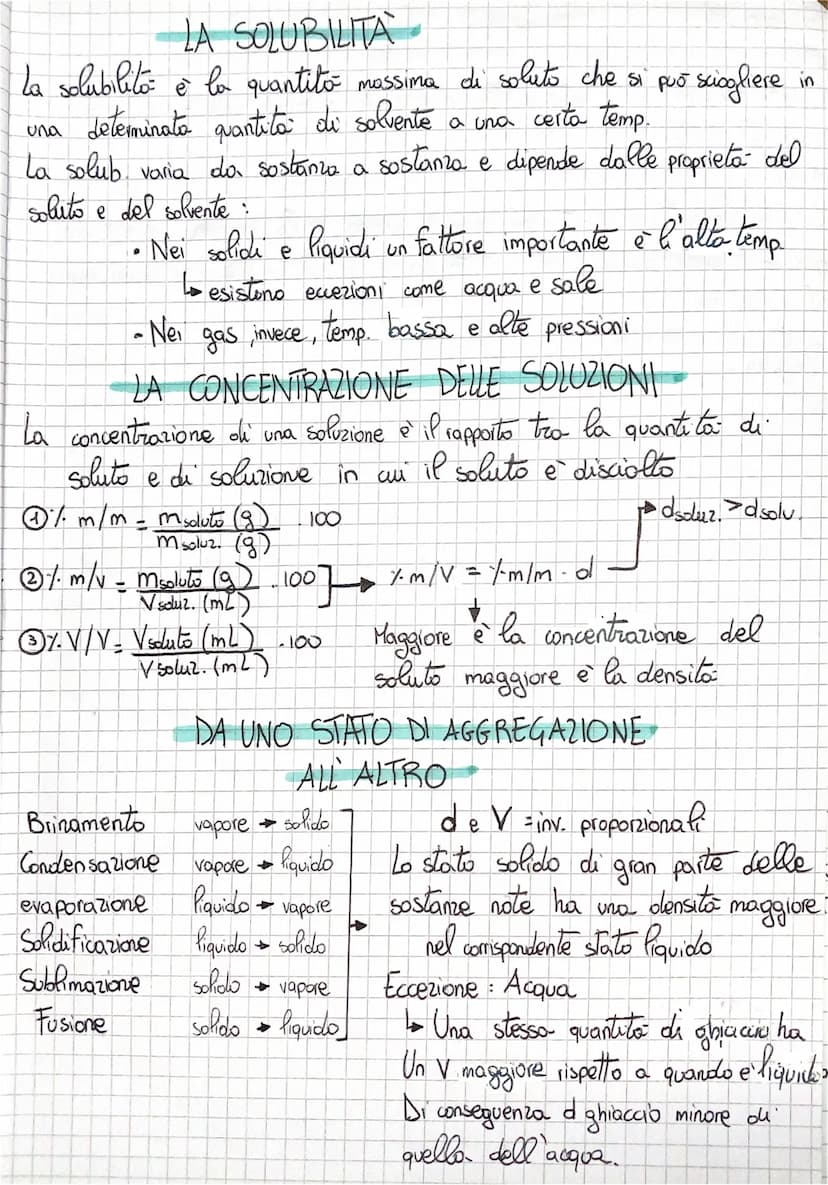 LA SOLUBILITÀ
La solubilità è la quantità massima di soluto che si può sciogliere in
una determinata quantità di solvente a una certa temp.
La solub. varia da sostanza a sostanza e dipende dalle proprietà del
soluto e del solvente:
• Nei solidi e liquidi un fattore importante è l'alta temp.
↳ esistono eccezioni come acqua e sale
- Nei gas invece, temp. bassa e alte pressioni
LA CONCENTRAZIONE DELLE SOLUZIONI
La concentrazione di una soluzione è il rapporto tra la quantità di
soluto e di soluzione in cui il soluto è disciolto
① % m/m = m soluto (g) / m soluz. (g) · 100
d soluz. > d solv.
② % m/v = m soluto (g) / V soluz. (mL) · 100 → % m/V = % m/m · d
③ % V/V = V soluto (mL) / V soluz. (mL) · 100
Maggiore è la concentrazione del
soluto maggiore è la densità
DA UNO STATO DI AGGREGAZIONE
ALL'ALTRO
Brinamento vapore → solido
Condensazione vapore → liquido
evaporazione liquido → vapore
Solidificazione liquido → solido
Sublimazione solido → vapore
Fusione solido → liquido
d e V = inv. proporzionali
Lo stato solido di gran parte delle
sostanze note ha una densità maggiore
nel corrispondente stato liquido
Eccezione : Acqua
↳ Una stessa quantità di ghiaccio ha
Un V maggiore rispetto a quando è liquida
Di conseguenza d ghiaccio minore di
quella dell'acqua.